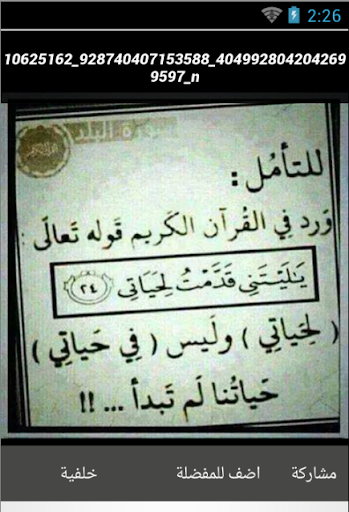 2:26
10625162_928740407153588_404992804204269
9599597_n
للتأمُل :
وَرد في القُرآن الكَريم قَوله تَعالَى :
يَٰلَيْتَنِى قَدَّمْتُ لِحَيَاتِى ﴿٢٤﴾
( لِحَياتِي ) ولَيس ( فِي حَياتِي )
حَياتُنا لَم تَبدأ ... !!
مشاركة
اضف للمفضلة
خلفية